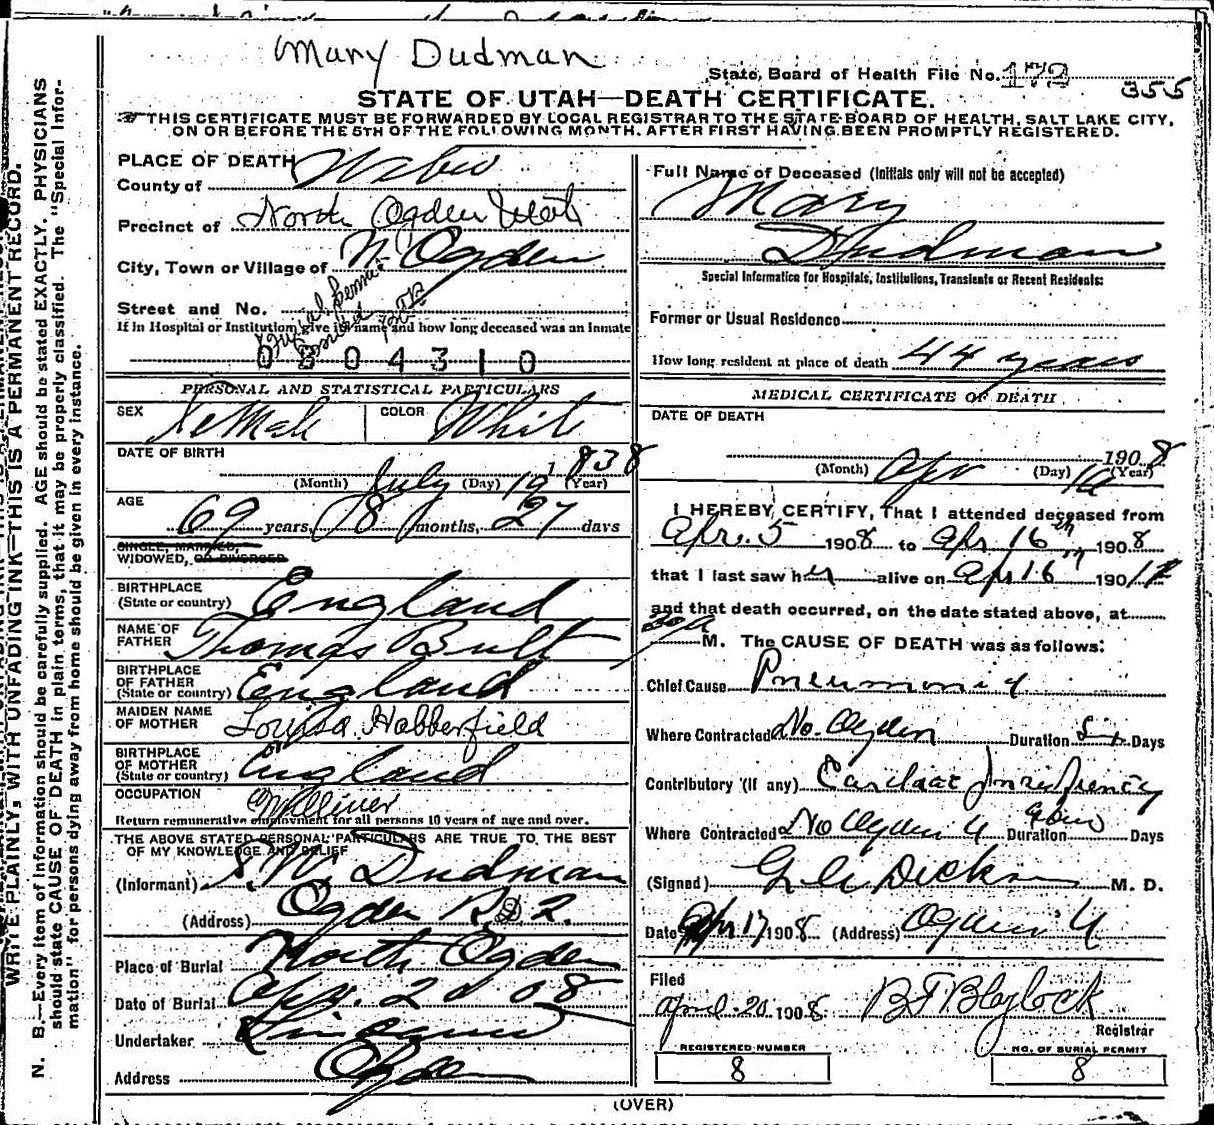 Mary Dudman
State Board of Health File No. 172
355
STATE OF UTAH—DEATH CERTIFICATE.
THIS CERTIFICATE MUST BE FORWARDED BY LOCAL REGISTRAR TO THE STATE BOARD OF HEALTH, SALT LAKE CITY,
ON OR BEFORE THE 5TH OF THE FOLLOWING MONTH, AFTER FIRST HAVING BEEN PROMPTLY REGISTERED.
WRITE PLAINLY, WITH UNFADING INK—THIS IS A PERMANENT RECORD.
N. B.—Every item of information should be carefully supplied. AGE should be stated EXACTLY. PHYSICIANS
should state CAUSE OF DEATH in plain terms, that it may be properly classified. The "Special Infor-
mation" for persons dying away from home should be given in every instance.
PLACE OF DEATH
County of Weber
Precinct of North Ogden
City, Town or Village of N. Ogden
Street and No.
If in Hospital or Institution, give its name and how long deceased was an inmate
0804310
PERSONAL AND STATISTICAL PARTICULARS
SEX Female COLOR White
DATE OF BIRTH
July 19 1838
(Month) (Day) (Year)
AGE
69 years, 8 months, 27 days
SINGLE, MARRIED,
WIDOWED, OR DIVORCED
BIRTHPLACE
(State or country) England
NAME OF
FATHER Thomas Bult
BIRTHPLACE
OF FATHER
(State or country) England
MAIDEN NAME
OF MOTHER Louisa Habberfield
BIRTHPLACE
OF MOTHER
(State or country) England
OCCUPATION Milliner
Return remunerative employment for all persons 10 years of age and over.
THE ABOVE STATED PERSONAL PARTICULARS ARE TRUE TO THE BEST
OF MY KNOWLEDGE AND BELIEF
(Informant) S. W. Dudman
(Address) Ogden R 2.
Place of Burial North Ogden
Date of Burial Apr. 20 08
Undertaker
Address Ogden
Full Name of Deceased (Initials only will not be accepted)
Mary
Dudman
Special Information for Hospitals, Institutions, Transients or Recent Residents:
Former or Usual Residence
How long resident at place of death 44 years
MEDICAL CERTIFICATE OF DEATH
DATE OF DEATH
Apr 1908
(Month) (Day) (Year)
I HEREBY CERTIFY, That I attended deceased from
Apr. 5 1908 to Apr 16th 1908
that I last saw her alive on Apr 16 190
and that death occurred, on the date stated above, at
M. The CAUSE OF DEATH was as follows:
Chief Cause Pneumonia
Where Contracted No. Ogden Duration Six Days
Contributory (if any) Cardiac
Where Contracted No Ogden U Duration Days
(Signed) Dickson M. D.
Date Apr 17 1908 (Address) Ogden U
Filed
April 20 1908 B F Blaylock
Registrar
REGISTERED NUMBER
8
NO. OF BURIAL PERMIT
8
(OVER)